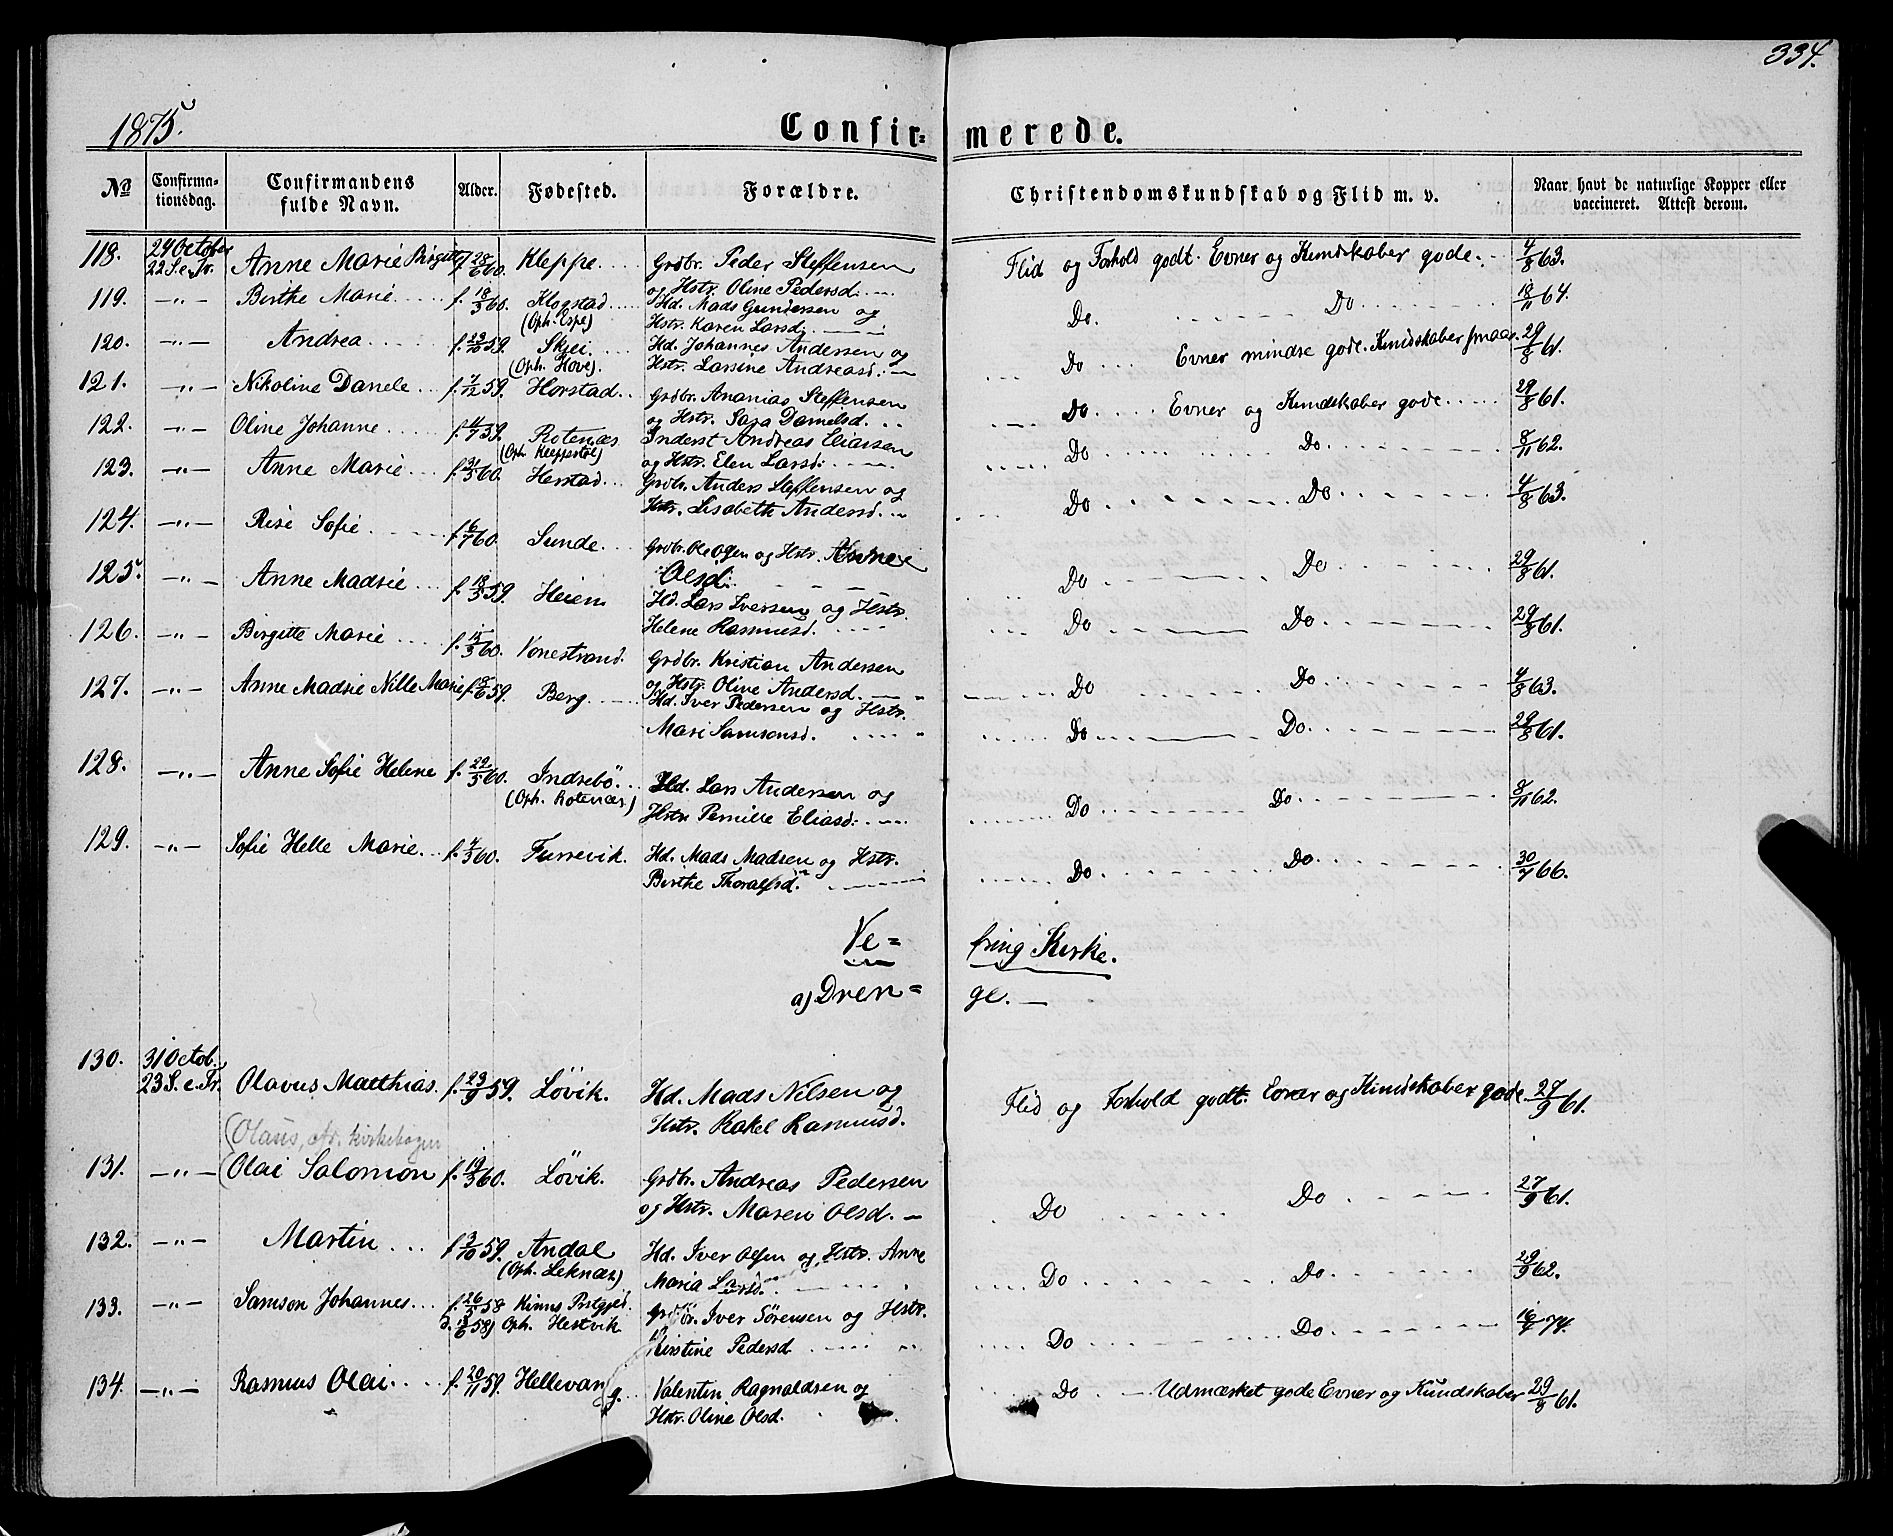 334.
1875.
Confir= merede.
No Confirmationsdag. Confirmandens fulde Navn. Alder. Fødested. Forældre. Christendomskundskab og Flid m. v. Naar havt de naturlige Kopper eller vaccineret. Attest derom.
118. 24 October 22 S. e. Tr. Anne Marie Birgitte f. 28/6 60. Kleppe.... Grdbr. Peder Steffensen og Hstr. Oline Pedersd. Flid og Forhold godt. Evner og Kundskaber gode. 4/8 63.
119. —"— Berthe Marie f. 18/3 60. Klogstad (Oph. Espe) Hd. Mads Gundersen og Hstr. Karen Larsd. Do. Do 18/11 64.
120. —"— Andrea f. 23/10 59. Skjei. (Oph. Hove). Hd. Johannes Andersen og Hstr. Larsine Andreasd. Do Evner mindre gode. Kundskaber smaae. 29/8 61.
121. —"— Nikoline Danele f. 7/12 59. Horstad.. Grdbr. Ananias Steffensen og Hstr. Sara Danielsd. Do Evner og Kundskaber gode 29/8 61.
122. —"— Oline Johanne f. 4/7 59. Rotenæs (Oph. Kleppstøl) Inderst Andreas Eliassen og Hstr. Elen Larsd. Do Do 8/11 62.
123. —"— Anne Marie f. 31/3 60. Herstad Grdbr. Anders Steffensen og Hstr. Lisabeth Andersd. Do Do 4/8 63.
124. —"— Rise Sofie f. 6/7 60. Sunde Grdbr. Ole Olsen og Hstr. Anne Olsd. Do Do 29/8 61.
125. —"— Anne Madsie f. 18/3 59. Heiem Hd. Lars Iversen og Hstr. Helene Rasmusd. Do Do 29/8 61.
126. —"— Birgitte Marie f. 15/3 60. Vonestrand. Grdbr. Kristian Andersen og Hstr. Oline Andersd. Do Do 4/8 63.
127. —"— Anne Madsie Nille Marie f. 18/6 59. Berg Hd. Iver Pedersen og Hstr. Mari Samsonsd. Do Do 29/8 61.
128. —"— Anne Sofie Helene f. 22/5 60. Indrebö (Oph. Rotenæs) Hd. Lars Andersen og Hstr. Pernille Eliasd. Do Do 8/11 62.
129. —"— Sofie Helle Marie f. 4/3 60. Furrevik. Hd. Mads Madsen og Hstr. Berthe Thoralfsd. Do Do 30/7 66.
Ve= fring Kirke.
a) Dren= ge.
130. 31 Octob. 23 S. e. Tr. Olavus Matthias. f. 23/9 59. Lövik. Hd. Mads Nilsen og Hstr. Rakel Rasmusd. Flid og Forhold godt. Evner og Kundskaber gode 27/9 61.
(Olaus, kirkebogen
131. —"— Olai Salomon f. 19/3 60. Lövik. Grdbr. Andreas Pedersen og Hstr. Maren Olsd. Do Do 27/9 61.
132. —"— Martin f. 3/10 59. Andal (Oph. Leknæs) Hd. Iver Olsen og Hstr. Anne Maria Larsd. Do Do 29/9 62.
133. —"— Samson Johannes f. 26/5 58 Kinns Prstgjed. Oph. Hestvik Grdbr. Iver Sörensen og Hstr. Kirstine Pedersd Do Do 16/4 74.
134. —"— Rasmus Olai f. 20/11 59. Hellevang. Valentin Ragnaldsen og Hstr. Oline Olsd. Do Udmærket gode Evner og Kundskaber 29/8 61.